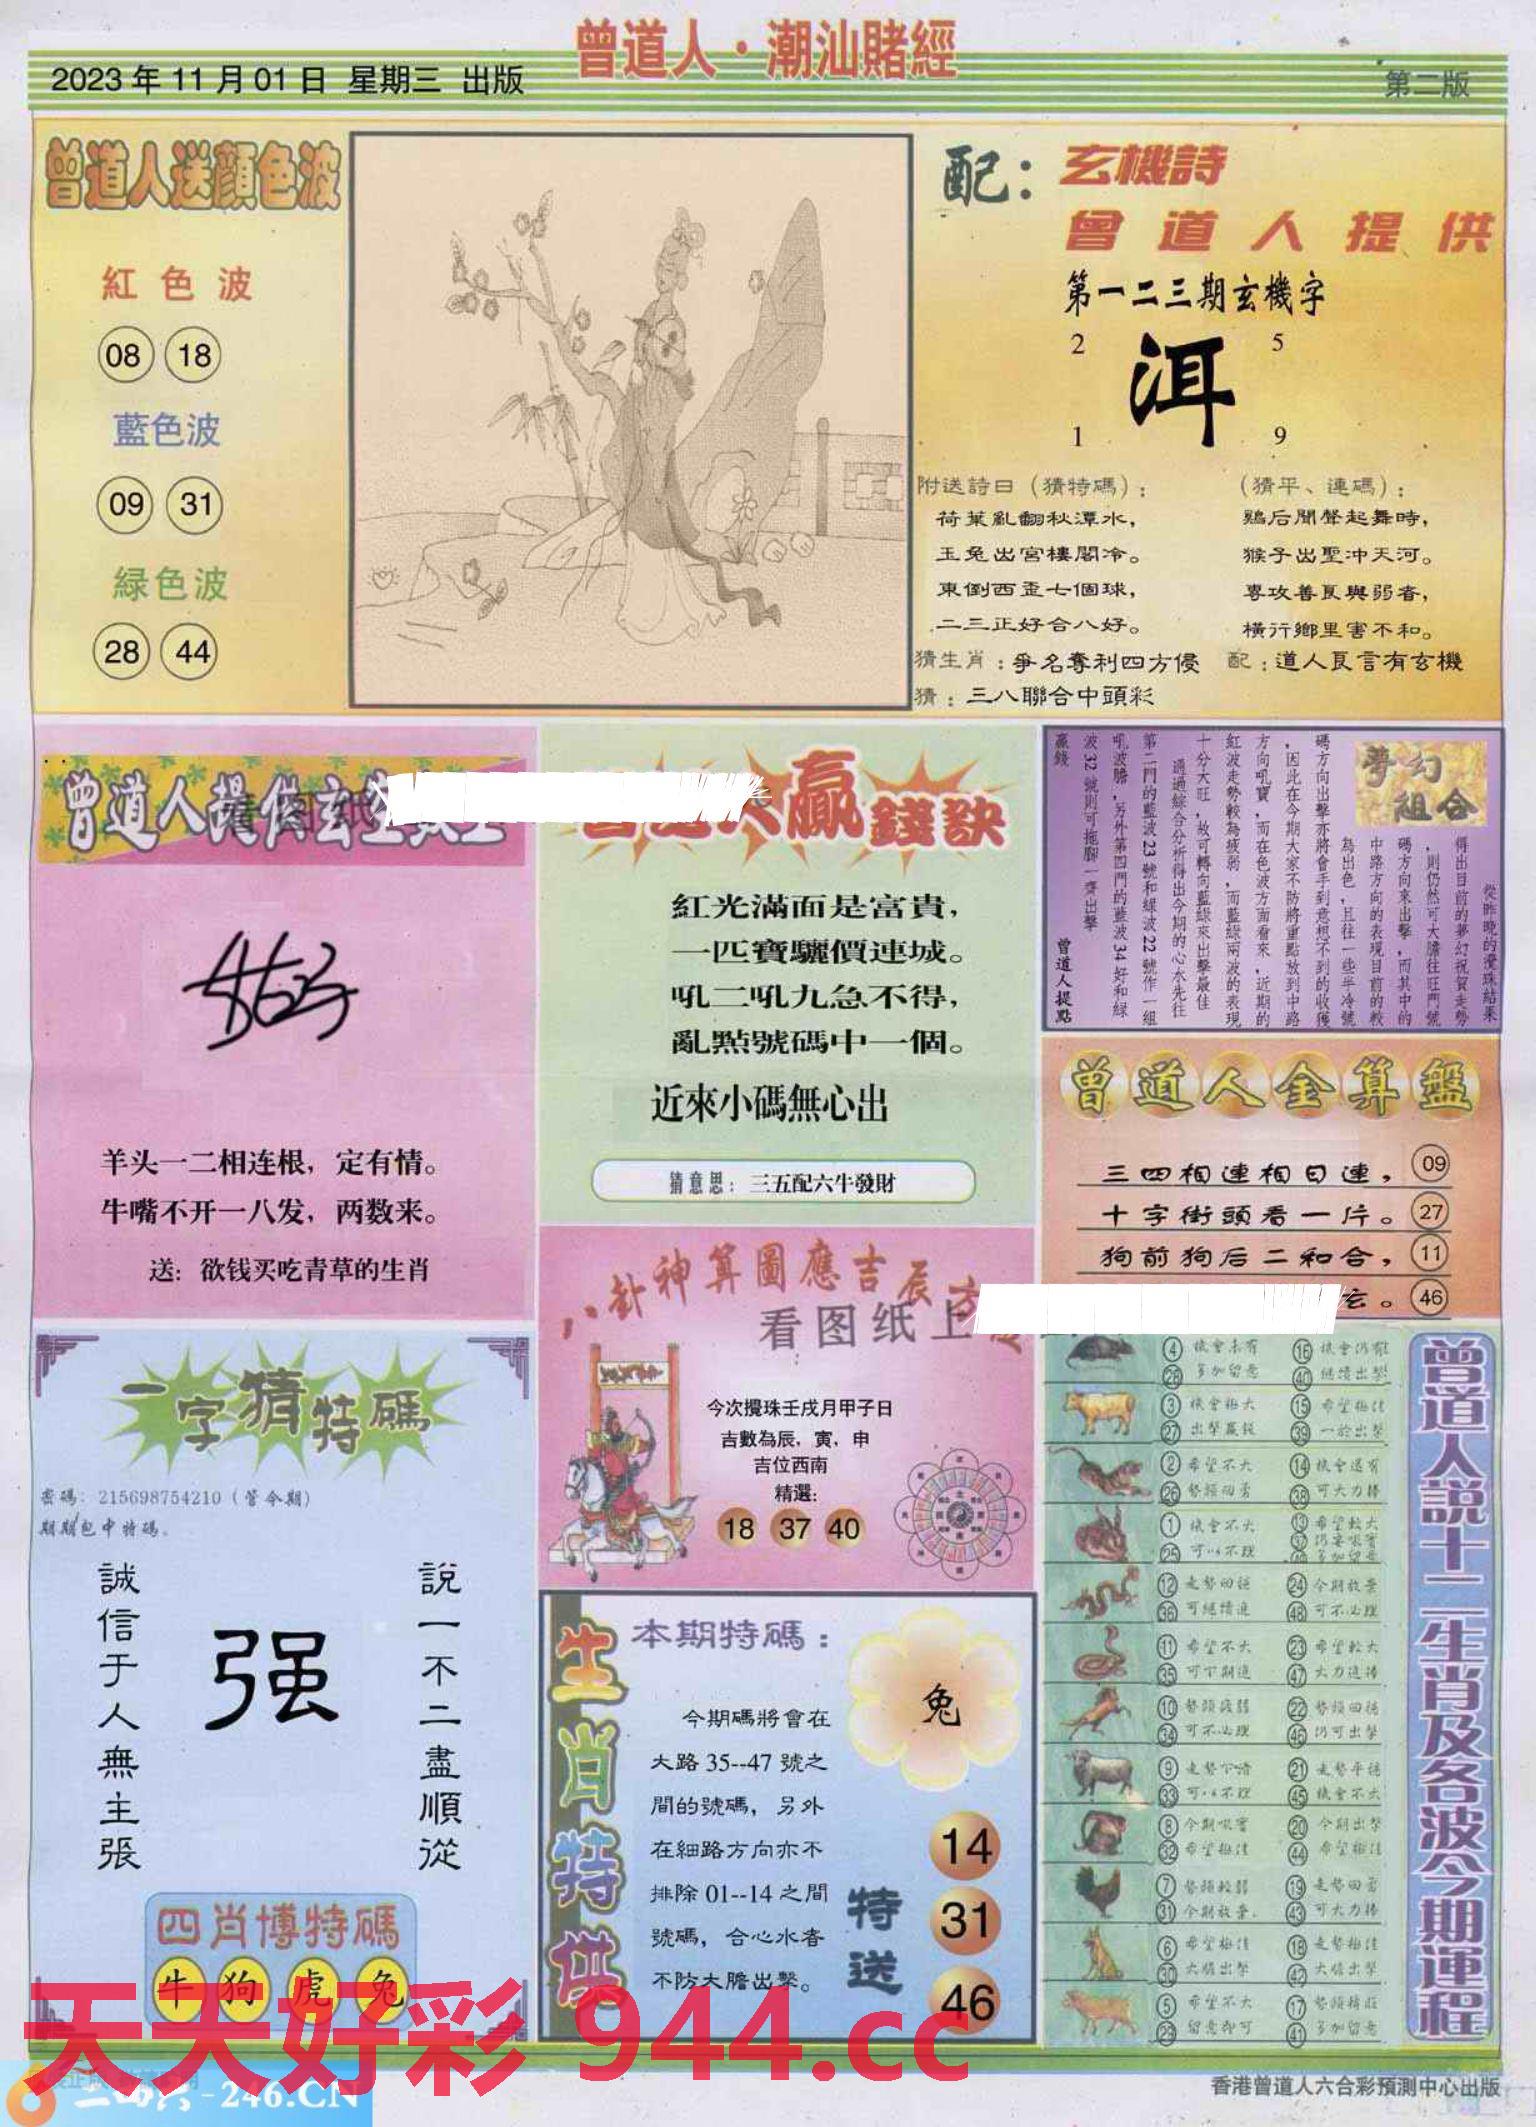 曾道人·潮汕賭經
2023年11月01日 星期三 出版
第二版
曾道人送顔色波
紅色波
08 18
藍色波
09 31
緑色波
28 44
配：玄機詩
曾道人提供
第一二三期玄機字
2 5
洱
1 9
附送詩曰（猜特碼）：
荷葉亂翻秋潭水，
玉兔出宮樓閣冷。
東倒西歪七個球，
二三正好合八好。
（猜平、連碼）：
鷄后聞聲起舞時，
猴子出聖冲天河。
專攻善良與弱者，
橫行鄉里害不和。
猜生肖：爭名奪利四方侵
配：道人良言有玄機
猜：三八聯合中頭彩
曾道人提供玄
羊头一二相连根，定有情。
牛嘴不开一八发，两数来。
送：欲钱买吃青草的生肖
贏錢訣
紅光滿面是富貴，
一匹寶驪價連城。
吼二吼九急不得，
亂點號碼中一個。
近來小碼無心出
猜意思：三五配六牛發財
夢幻組合
從昨晚的攪珠結果
得出目前的夢幻祝賀走勢
，則仍然可大膽往旺門號
碼方向來出擊，而其中的
中路方向的表現目前的較
為出色，且往一些半冷號
碼方向出擊亦將會手到意想不到的收獲
，因此在今期大家不防將重點放到中路
方向吼寶，而在色波方面看來，近期的
紅波走勢較為疲弱，而藍綠兩波的表現
十分大旺，故可轉向藍綠來出擊最佳
通過綜合分析得出今期的心水先往
第二門的藍波23號和緑波22號作一組
吼波膽，另外第四門的藍波34好和緑
波32號則可拖腳一齊出擊
贏錢
曾道人提點
曾道人金算盤
三四相連相日連， 09
十字街頭看一片。 27
狗前狗后二和合， 11
玄。 46
八卦神算圖應吉辰方
看图纸上
今次攪珠壬戌月甲子日
吉數為辰，寅，申
吉位西南
精選：
18 37 40
一字猜特碼
密碼：215698754210（管今期）
期期包中特碼。
誠信于人無主張
强
說一不二盡順從
四肖博特碼
牛 狗 虎 兔
生肖特供
本期特碼：
兔
今期碼將會在
大路35--47號之
間的號碼，另外
在細路方向亦不
排除01--14之間
號碼，合心水者
不防大膽出擊。
特送
14
31
46
曾道人説十二生肖及各波今期運程
④ 機會未有 ⑯ 機會仍有
㉘ 多加留意 ㊵ 繼續出擊
③ 機會極大 ⑮ 希望極佳
㉗ 出擊贏錢 ㊴ 一於出擊
② 希望不大 ⑭ 機會還有
㉖ 勢頭回勇 ㊳ 可大力捧
① 機會不大 ⑬ 希望較大
㉕ 可以不理
⑫ 走勢回穩 ㉔ 今期放棄
㊱ 可繼續追 ㊽ 可不必理
⑪ 希望不大 ㉓ 希望較大
㉟ 可下期追 ㊼ 大力追捧
⑩ 勢頭疲弱 ㉒ 勢頭回穩
㉞ 可不必理 ㊻ 仍可出擊
⑨ 走勢下滑 ㉑ 走勢平穩
㉝ 可以不理 ㊺ 機會不大
⑧ 今期吼實 ⑳ 今期出擊
㉜ 希望極佳 ㊹ 希望極佳
⑦ 勢頭較弱 ⑲ 走勢回勇
㉛ 今期放棄 ㊸ 可大力捧
⑥ 希望極佳 ⑱ 走勢極佳
㉚ 大膽出擊 ㊷ 大膽出擊
⑤ 希望不大 ⑰ 勢頭轉旺
㉙ 留意即可 ㊶ 多加留意
天天好彩 944.cc
二四六-246.CN
香港曾道人六合彩預測中心出版